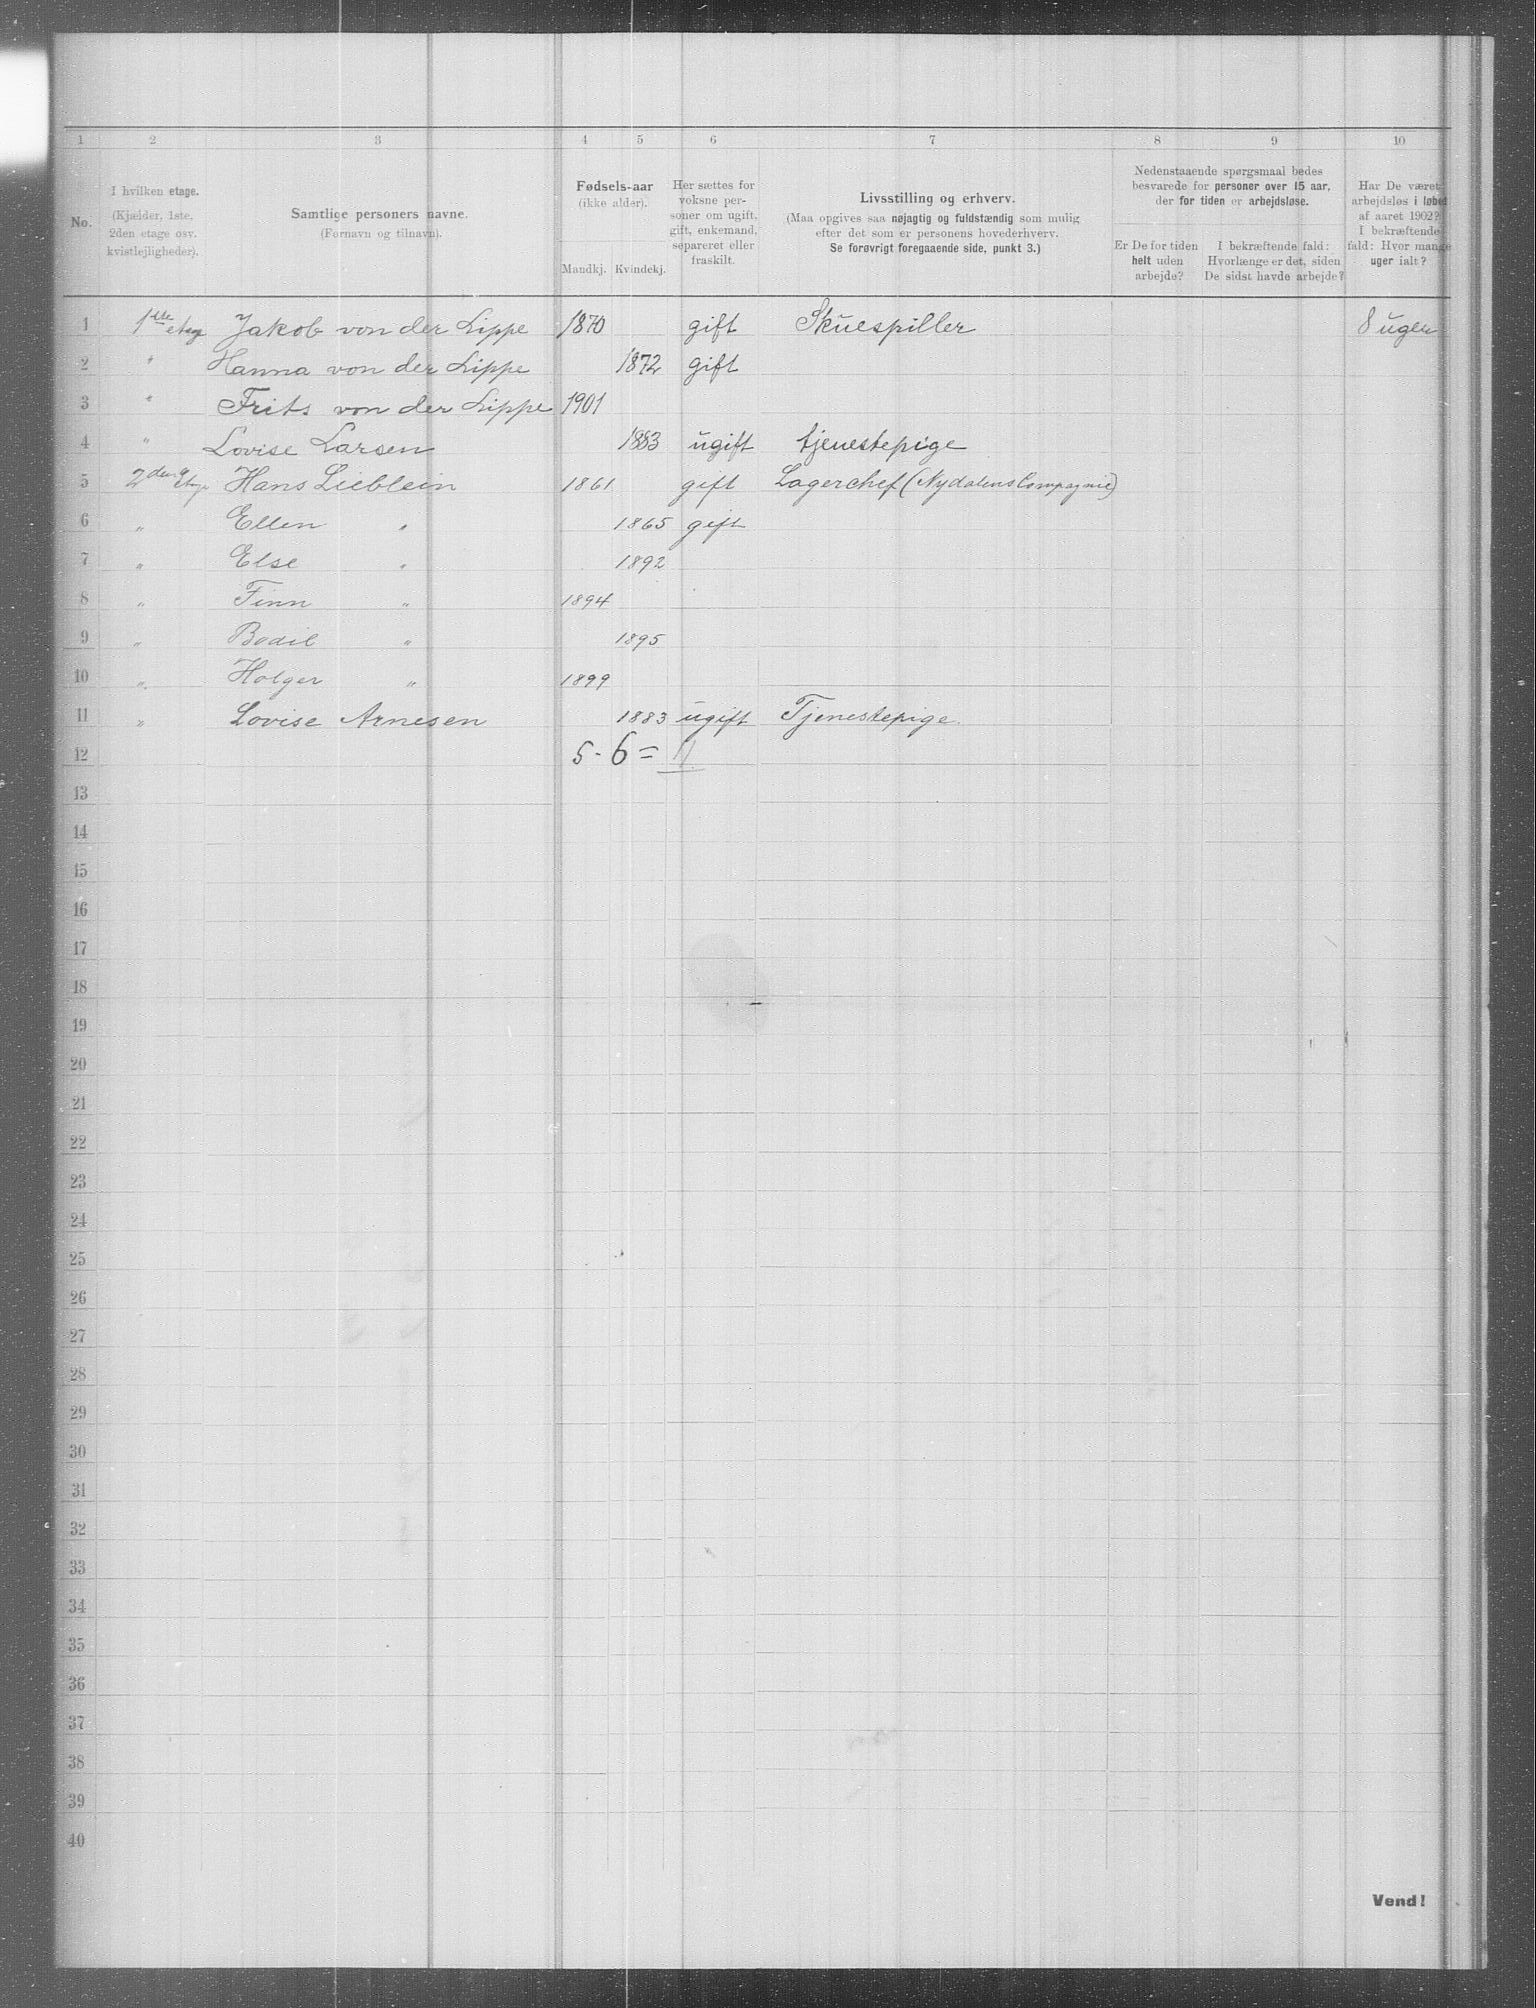 1 2 3 4 5 6 7 8 9 10
No.
I hvilken etage.
(Kjælder, 1ste,
2den etage osv.
kvistlejligheder).
Samtlige personers navne.
(Fornavn og tilnavn).
Fødsels-aar
(ikke alder).
Mandkj. Kvindekj.
Her sættes for
voksne per-
soner om ugift,
gift, enkemand,
separeret eller
fraskilt.
Livsstilling og erhverv.
(Maa opgives saa nøjagtig og fuldstændig som mulig
efter det som er personens hovederhverv.
Se forøvrigt foregaaende side, punkt 3.)
Nedenstaaende spørgsmaal bedes
besvarede for personer over 15 aar,
der for tiden er arbejdsløse.
Er De for tiden
helt uden
arbejde?
I bekræftende fald:
Hvorlænge er det, siden
De sidst havde arbejde?
Har De været
arbejdsløs i løbet
af aaret 1902?
I bekræftende
fald: Hvor mange
uger ialt?
1 1ste etage Jakob von der Lippe 1870 gift Skuespiller 8 uger
2 " Hanna von der Lippe 1872 gift
3 " Frits von der Lippe 1901
4 " Lovise Larsen 1883 ugift tjenestepige
5 2den Etage Hans Lieblein 1861 gift Lagerchef (Nydalens Compagnie)
6 " Ellen " 1865 gift
7 " Else " 1892
8 " Finn " 1894
9 " Bodil " 1895
10 " Holger " 1899
11 " Lovise Arnesen 1883 ugift Tjenestepige.
12 5 - 6 = 11
13
14
15
16
17
18
19
20
21
22
23
24
25
26
27
28
29
30
31
32
33
34
35
36
37
38
39
40
Vend!